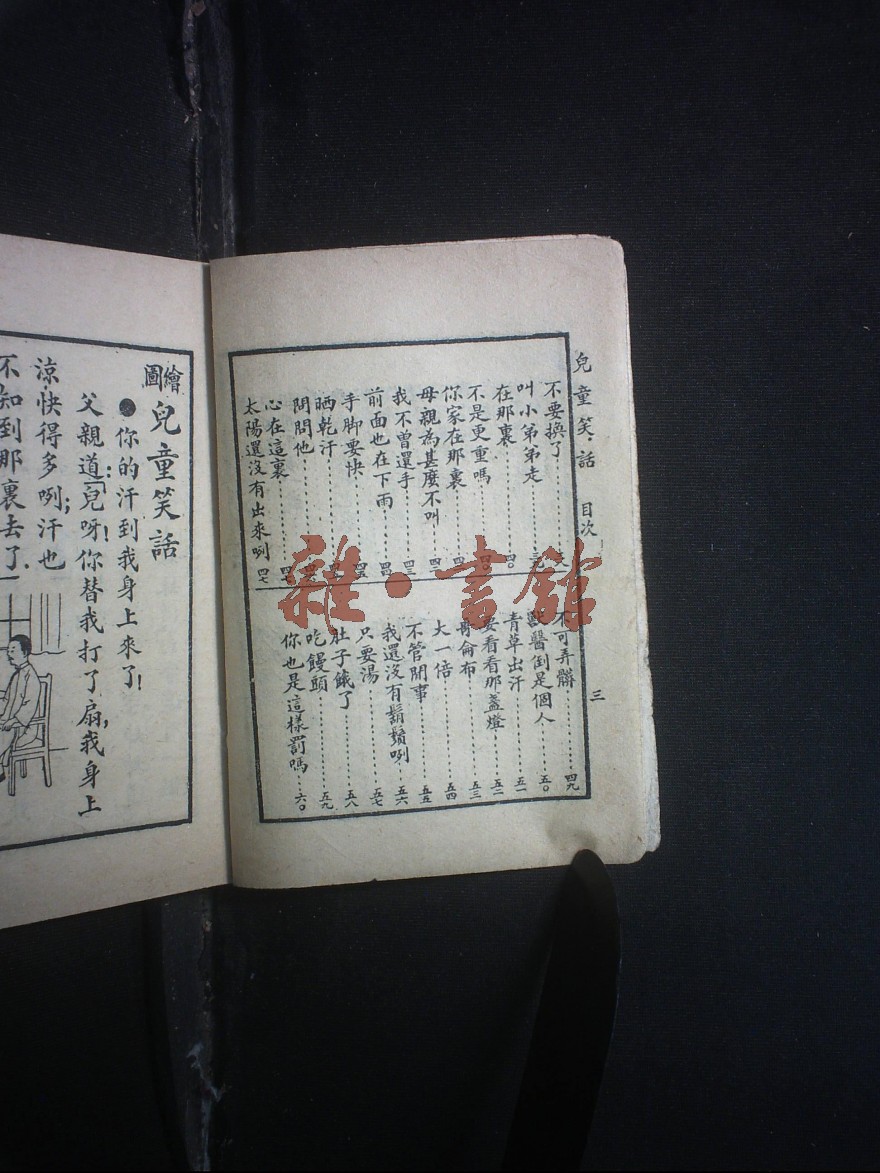 兒童笑話 目次 三
不要換了
叫小弟弟走
在那裏……四〇
不是更重嗎
你家在那裏
母親為甚麼不叫……四二
我不曾還手……四三
前面也在下雨……四四
手脚要快……四五
晒乾汗
問問他
心在這裏
太陽還沒有出來咧……四七
不可弄髒……四九
獸醫倒是個人……五〇
青草出汗……五一
要看看那盞燈……五二
哥侖布……五三
大一倍……五四
不管閒事……五五
我還沒有鬍鬚咧……五六
只要湯……五七
肚子餓了……五八
吃饅頭……五九
你也是這樣罰嗎……六〇
繪圖 兒童笑話
●你的汗到我身上來了!
父親道:「兒呀!你替我打了扇,我身上
涼快得多咧;汗也
不知到那裏去了.
雜·書館